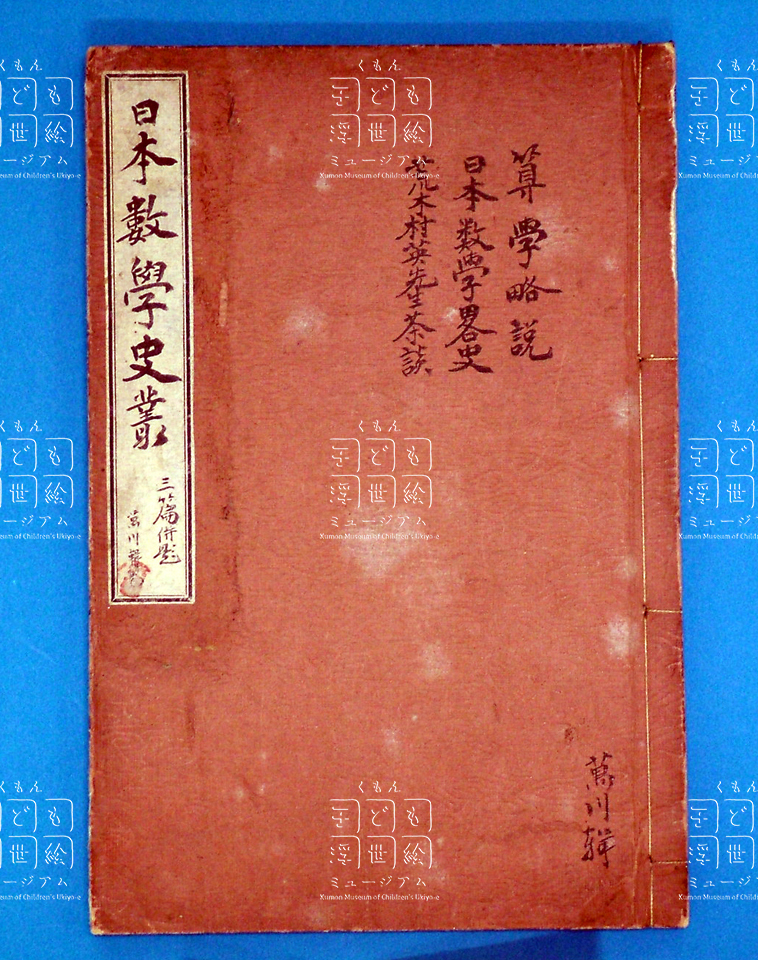 算學略説
日本数學畧史
荒木村英先生茶談
日本數學史叢
三篇併題
萬川輯
くもん
子ども
浮世絵
ミュージアム
Kumon Museum of Children's Ukiyo-e